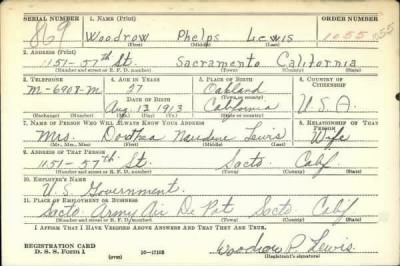 SERIAL NUMBER 1. NAME (Print) ORDER NUMBER
869 Woodrow Phelps Lewis 1055
(First) (Middle) (Last)
2. ADDRESS (Print)
1151-57th St. Sacramento California
(Number and street or R. F. D. number) (Town) (County) (State)
3. TELEPHONE 4. AGE IN YEARS 5. PLACE OF BIRTH 6. COUNTRY OF CITIZENSHIP
M-6908-M 27 Oakland
DATE OF BIRTH (Town or county)
Aug 13 1913 California U.S.A.
(Exchange) (Number) (Mo.) (Day) (Yr.) (State or country)
7. NAME OF PERSON WHO WILL ALWAYS KNOW YOUR ADDRESS 8. RELATIONSHIP OF THAT PERSON
Mrs. Lewis Wife
(Mr., Mrs., Miss) (First) (Middle) (Last)
9. ADDRESS OF THAT PERSON
1151-57th St. Sacto. Calif.
(Number and street or R. F. D. number) (Town) (County) (State)
10. EMPLOYER'S NAME
U.S. Government.
11. PLACE OF EMPLOYMENT OR BUSINESS
Sacto Army Air De Pot Sacto Calif
(Number and street or R. F. D. number) (Town) (County) (State)
I AFFIRM THAT I HAVE VERIFIED ABOVE ANSWERS AND THAT THEY ARE TRUE.
REGISTRATION CARD
D. S. S. Form 1 (over) 16-17105 Woodrow P. Lewis
(Registrant's signature)